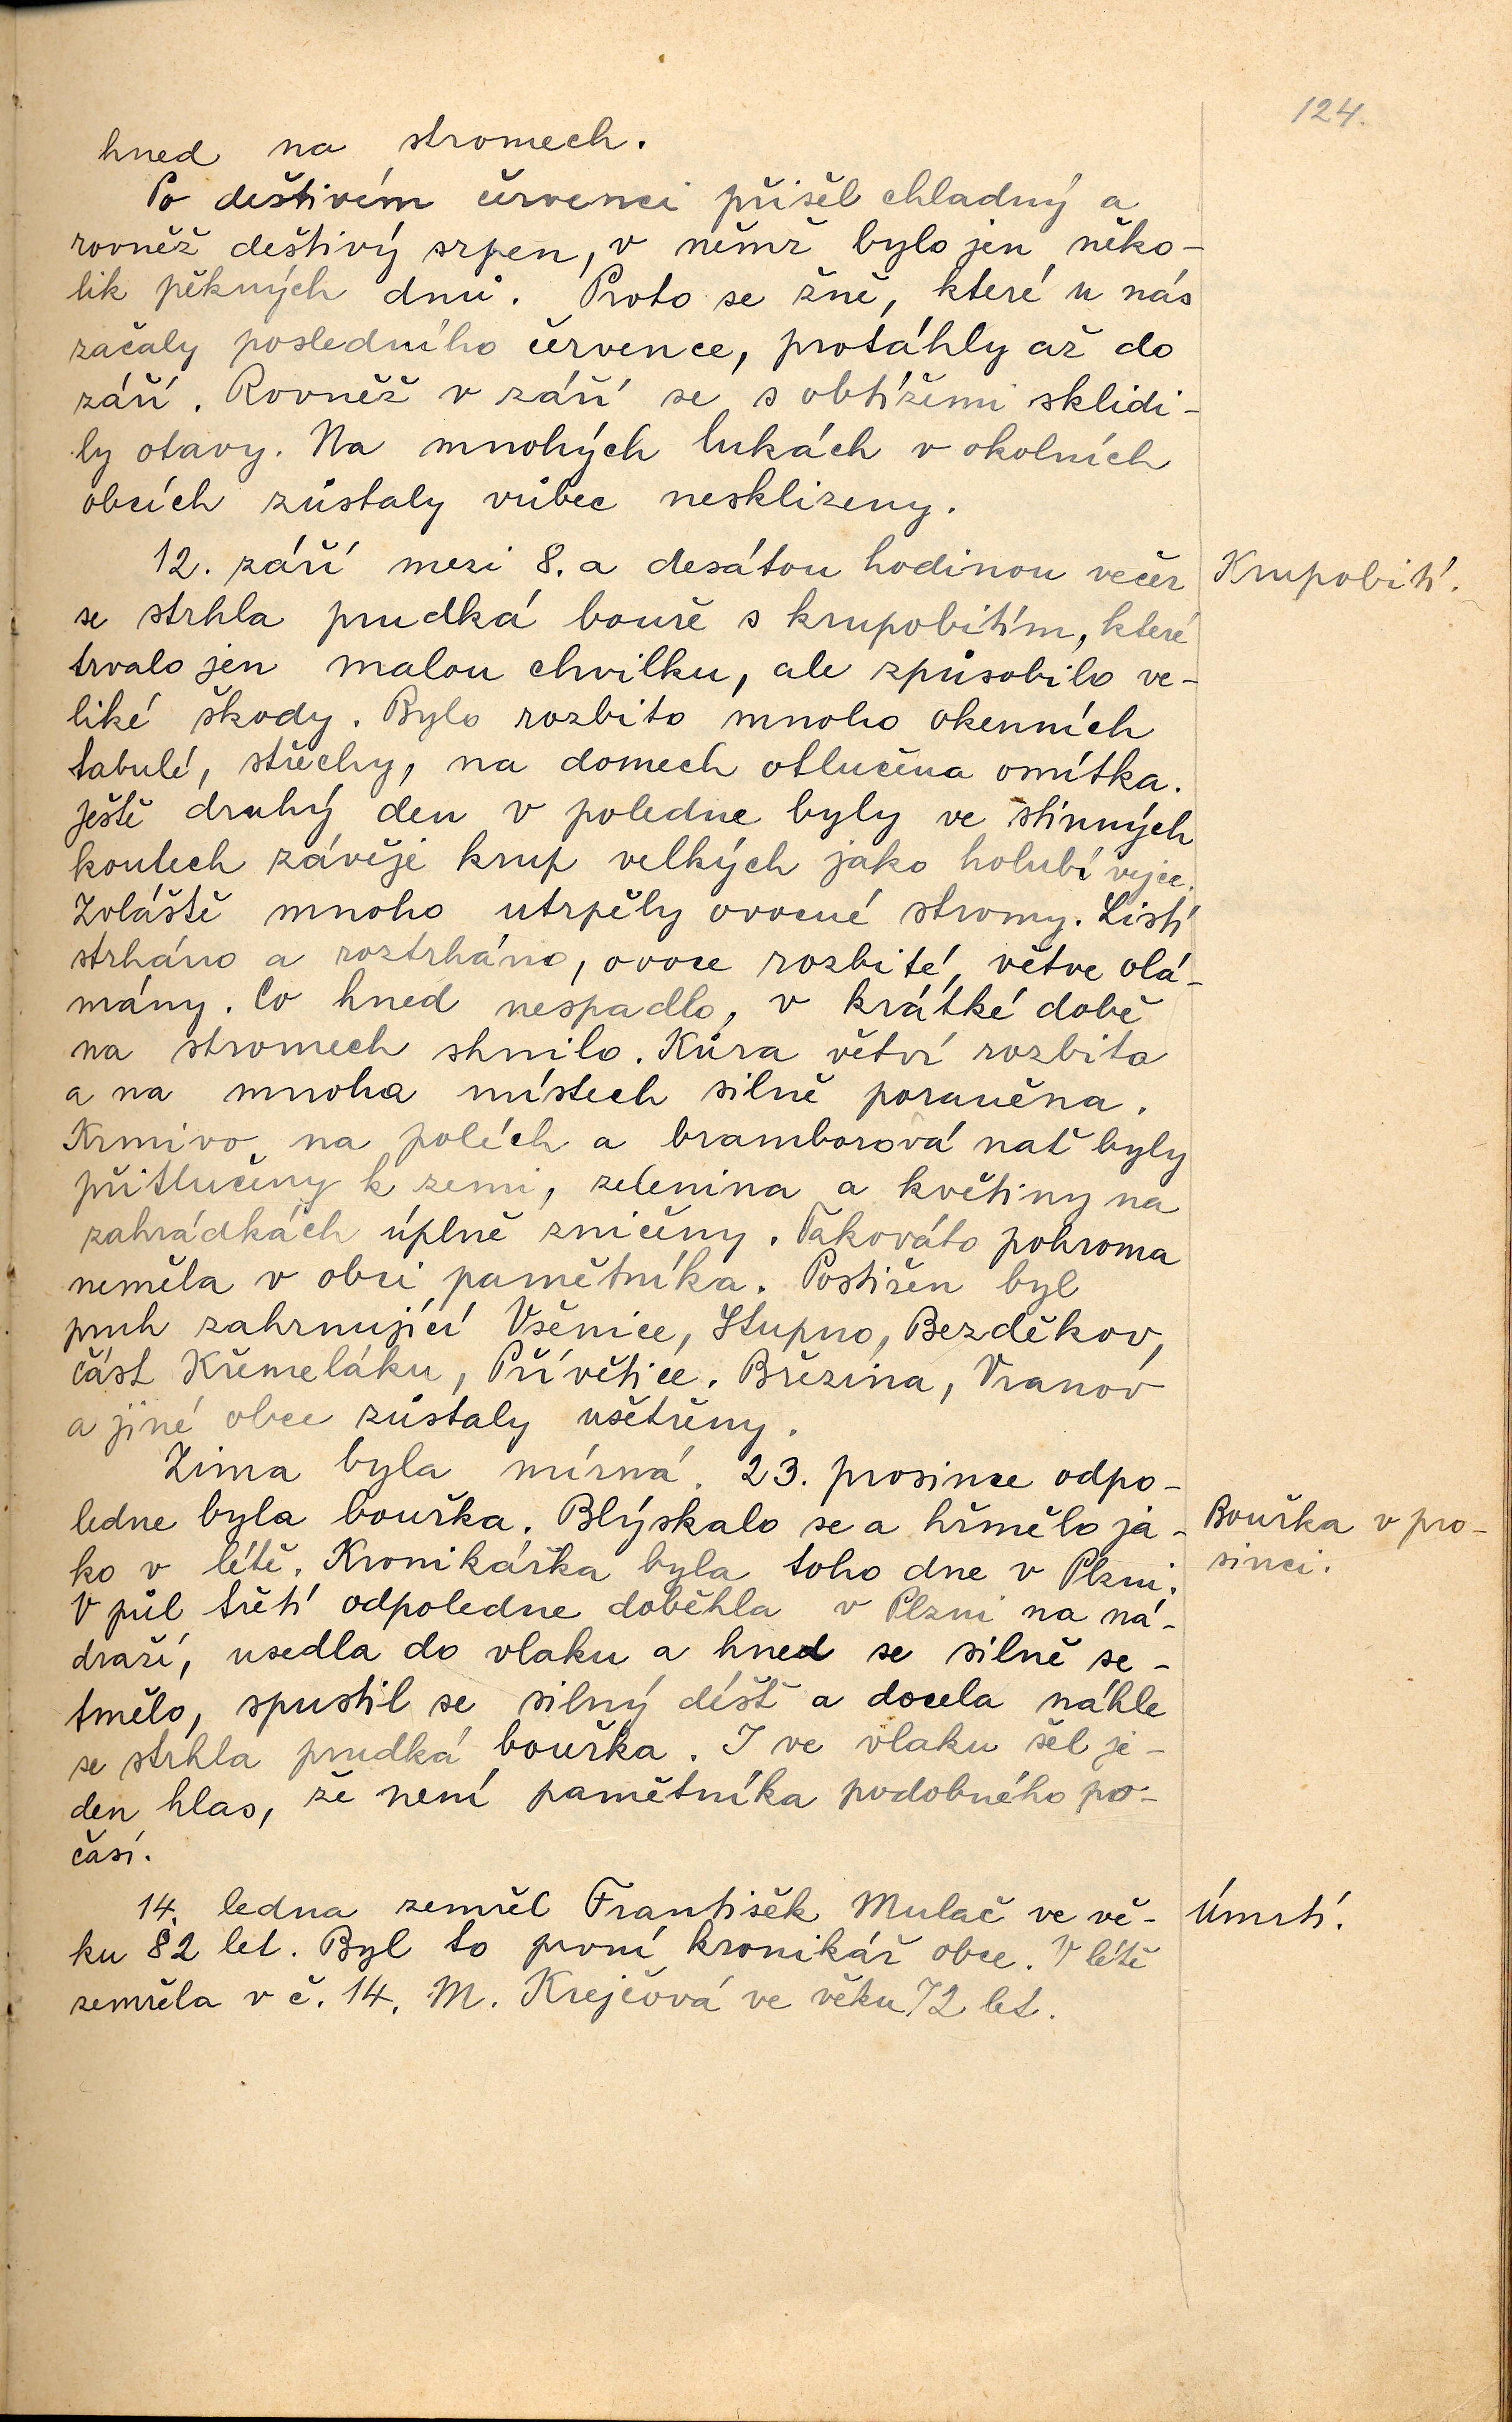 124.
hned na stromech.
Po deštivém červenci přišel chladný a
rovněž deštivý srpen, v němž bylo jen něko-
lik pěkných dnů. Proto se žně, které u nás
začaly posledního července, protáhly až do
září. Rovněž v září se s obtížemi sklidi-
ly otavy. Na mnohých lukách v okolních
obcích zůstaly vůbec nesklizeny.
12. září mezi 8. a desátou hodinou večer
Krupobití.
se strhla prudká bouře s krupobitím, které
trvalo jen malou chvilku, ale způsobilo ve-
liké škody. Bylo rozbito mnoho okenních
tabulí, střechy, na domech otlučena omítka.
Ještě druhý den v poledne byly ve stinných
koutech závěje krup velkých jako holubí vejce.
Zvláště mnoho utrpěly ovocné stromy. Listí
strháno a roztrháno, ovoce rozbité, větve olá-
mány. Co hned nespadlo, v krátké době
na stromech shnilo. Kůra větví rozbita
a na mnoha místech silně poraněna.
Krmivo na polích a bramborová nať byly
přitlučeny k zemi, zelenina a květiny na
zahrádkách úplně zničeny. Takováto pohroma
neměla v obci pamětníka. Postižen byl
pruh zahrnující Všenice, Stupno, Bezděkov,
část Křemeláku, Přívětice. Březina, Vranov
a jiné obce zůstaly ušetřeny.
Zima byla mírná. 23. prosince odpo-
ledne byla bouřka. Blýskalo se a hřmělo ja-
Bouřka v pro-
sinci.
ko v létě. Kronikářka byla toho dne v Plzni.
V půl třetí odpoledne doběhla v Plzni na ná-
draží, usedla do vlaku a hned se silně se-
tmělo, spustil se silný déšť a docela náhle
se strhla prudká bouřka. I ve vlaku šel je-
den hlas, že není pamětníka podobného po-
časí.
14. ledna zemřel František Mulač ve vě-
Úmrtí.
ku 82 let. Byl to první kronikář obce. V létě
zemřela v č. 14. M. Krejčová ve věku 72 let.